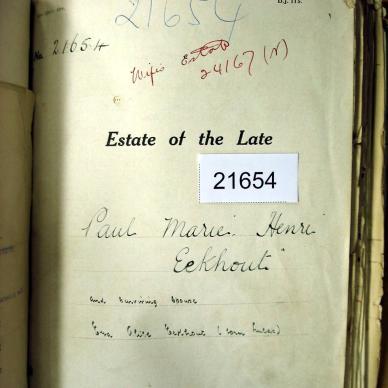 21654
No 21654
Wife's Estate
24167 (N)
Estate of the Late
21654
Paul Marie Henri
Eeckhout
and surviving spouse
Eeckhout (born